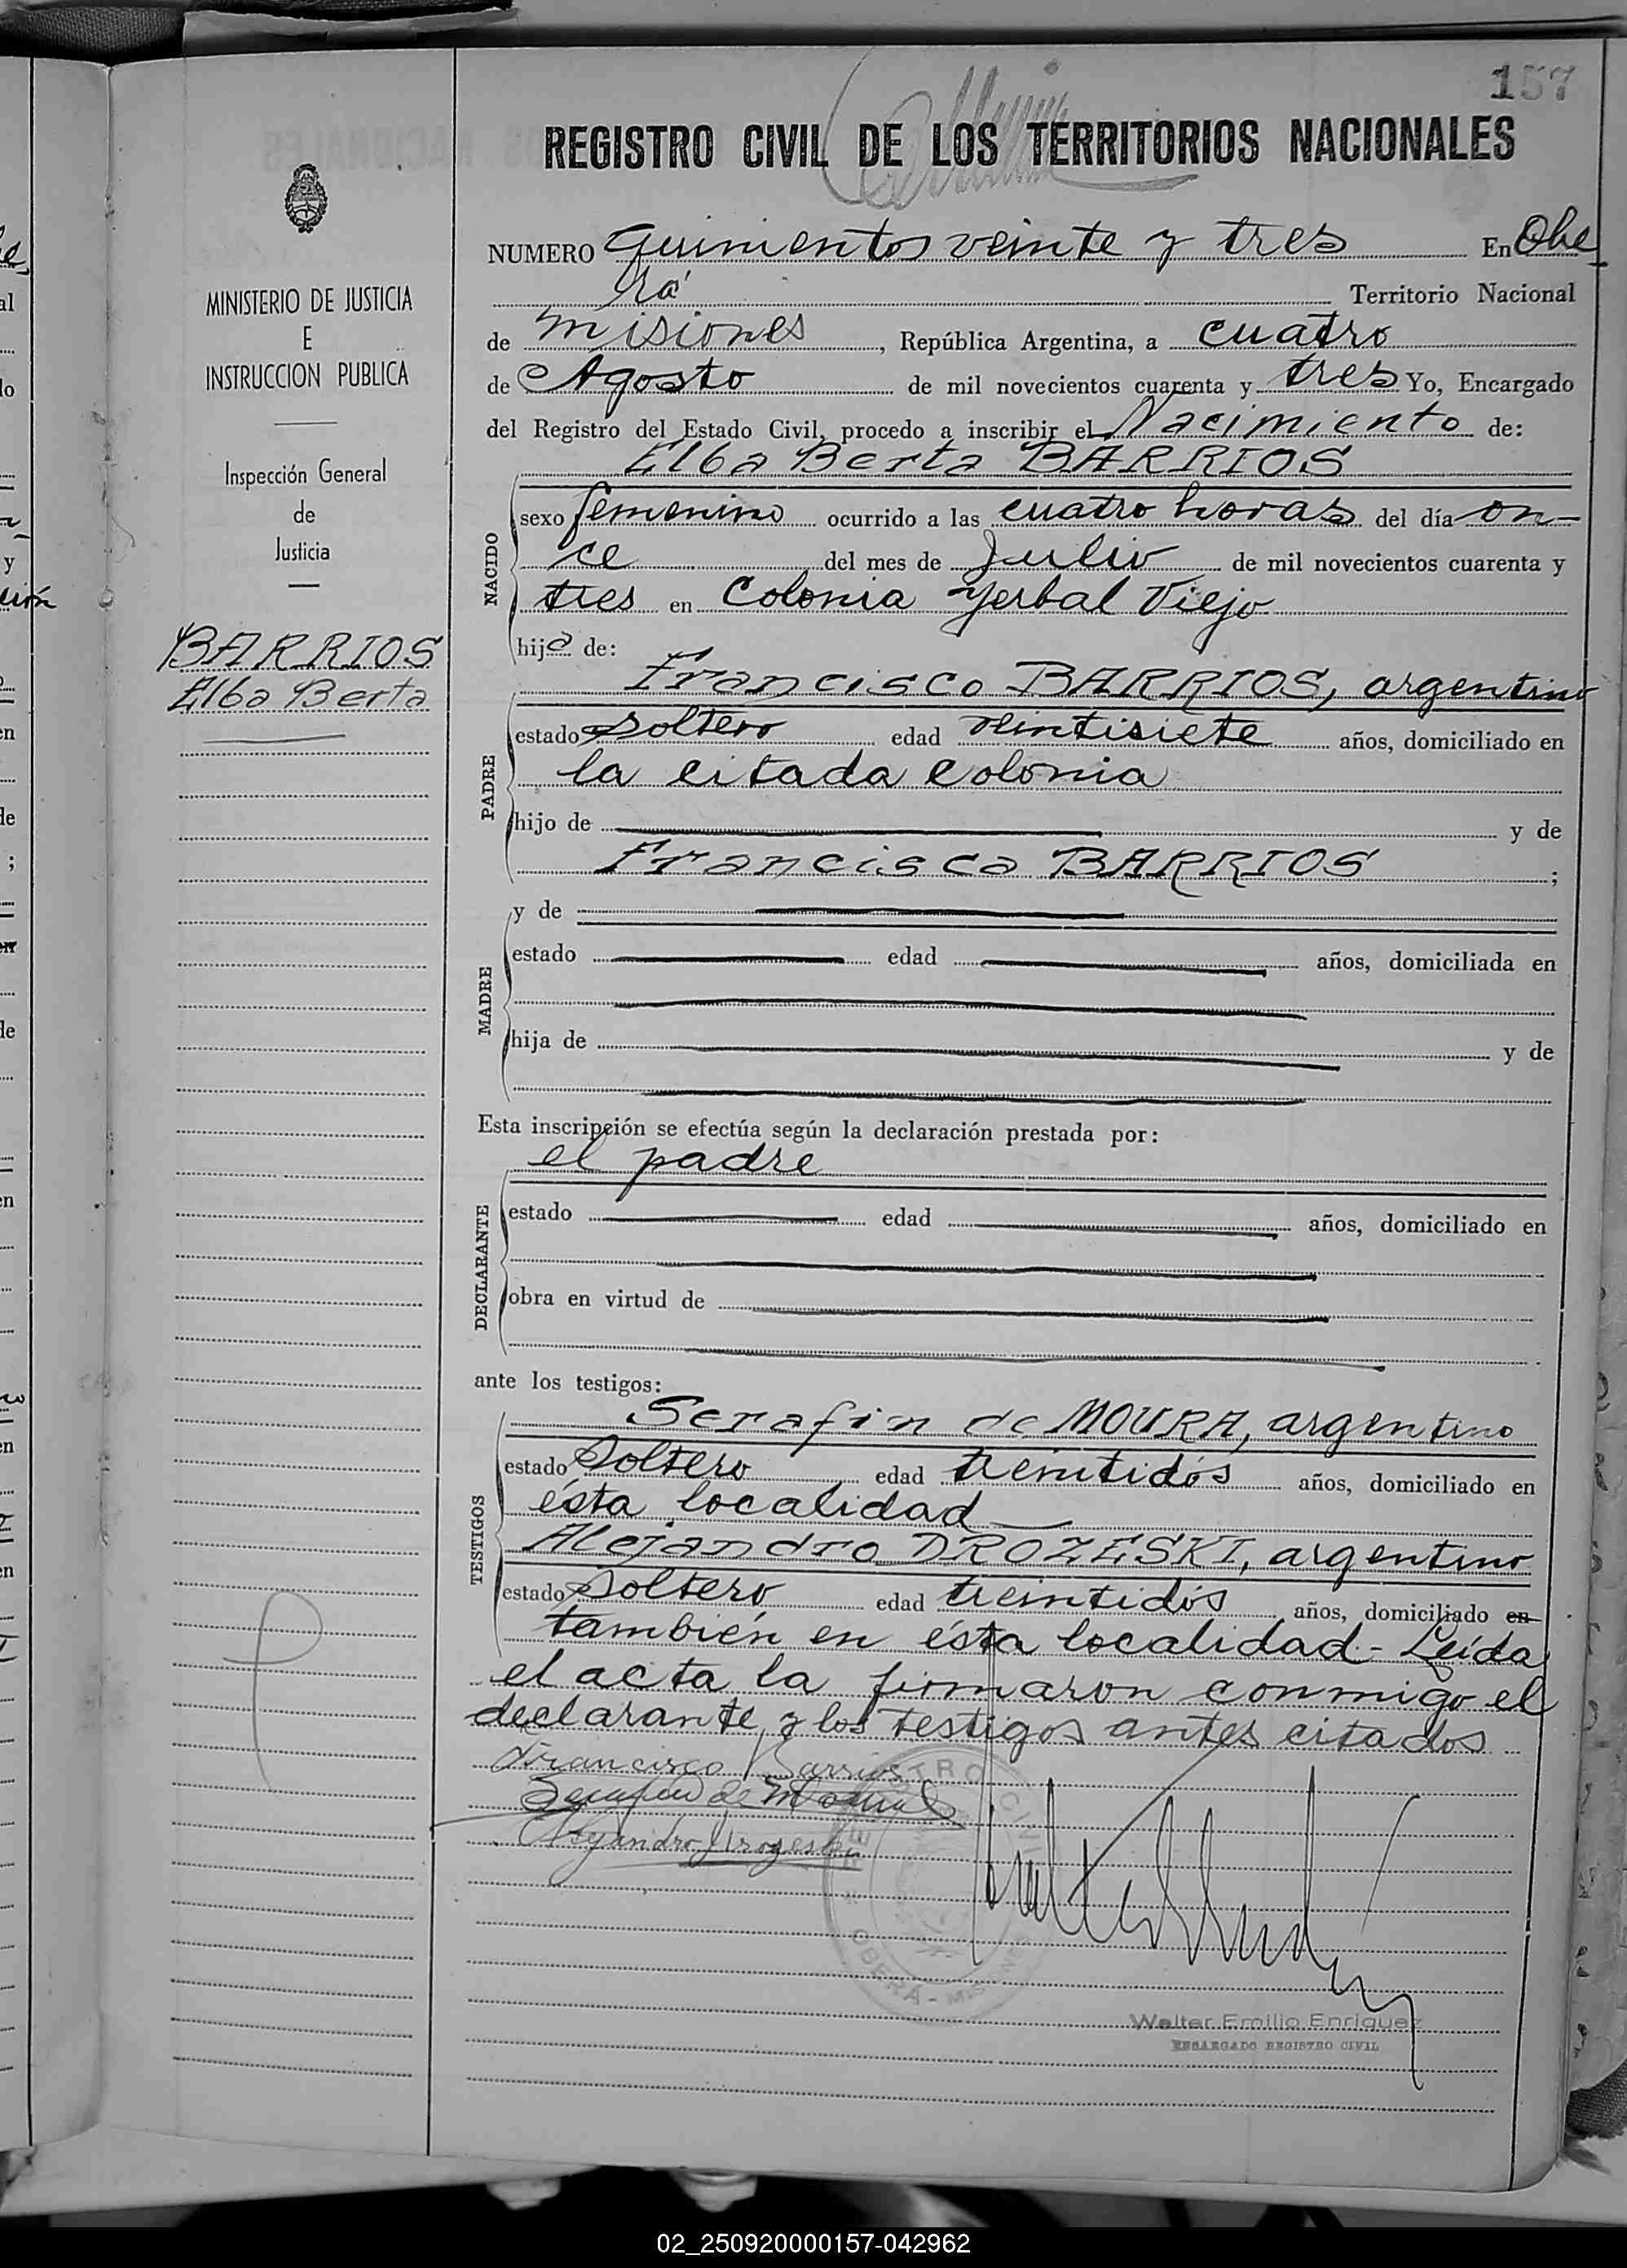 157
REGISTRO CIVIL DE LOS TERRITORIOS NACIONALES
MINISTERIO DE JUSTICIA
E
INSTRUCCION PUBLICA
Inspección General
de
Justicia
BARRIOS
Elba Berta
NUMERO Quinientos veinte y tres En Obe
rá Territorio Nacional
de Misiones, República Argentina, a cuatro
de Agosto de mil novecientos cuarenta y tres Yo, Encargado
del Registro del Estado Civil, procedo a inscribir el Nacimiento de:
Elba Berta BARRIOS
NACIDO
sexo femenino ocurrido a las cuatro horas del día on-
ce del mes de Julio de mil novecientos cuarenta y
tres en Colonia Yerbal Viejo
hija de:
Francisco BARRIOS, argentino
PADRE
estado soltero edad veintisiete años, domiciliado en
la citada colonia
hijo de y de
Francisca BARRIOS ;
MADRE
y de
estado edad años, domiciliada en
hija de y de
Esta inscripción se efectúa según la declaración prestada por:
el padre
DECLARANTE
estado edad años, domiciliado en
obra en virtud de
ante los testigos:
Serafin de MOURA, argentino
TESTIGOS
estado soltero edad treintidós años, domiciliado en
ésta localidad
Alejandro DROZESKI, argentino
estado soltero edad treintidós años, domiciliado en
también en ésta localidad - Leída
el acta la firmaron conmigo el
declarante y los testigos antes citados
Francisco Barrios
Serafin de Moura
Alejandro Drozeski
REGISTRO CIVIL
OBERÁ - MISIONES
Walter Emilio Enriquez
ENCARGADO REGISTRO CIVIL
02_250920000157-042962